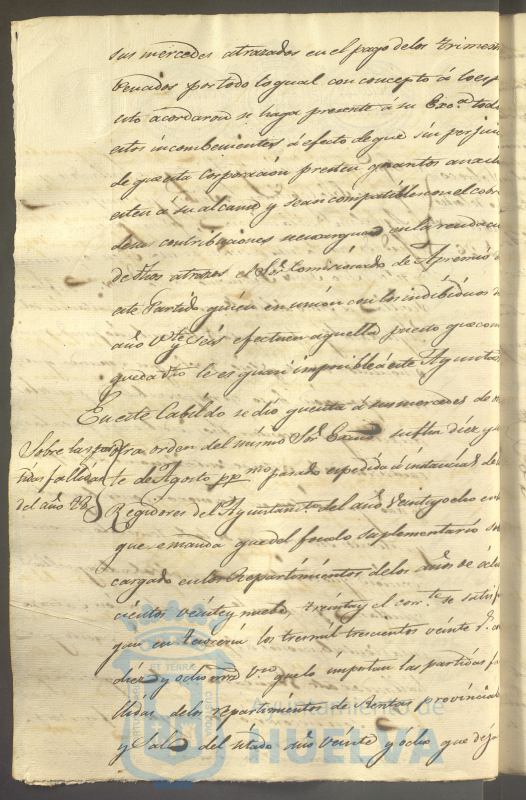 sus mercedes atrazados en el pago de los trimes
vencidos por todo lo qual con concepto á lo esp
uto acordaron se haga presente á su Exc.ª todo
estos incombenientes á efecto de que sin perjui
de que esta Corporacion presten quantos auxil
esten á su alcance y sean compatibles con el cobro
de sus contribuciones se encargue en la recauda
de dhos atrasos el Sor Comisionado de Apremio d
este Partido quien en union con los indibiduos d
año Vte y seis efectuen aquella puesto que como
queda dho le es quasi imposible á este Ayuntam
En este Cabildo se dio quenta á sus mercedes de
Sobre las par
tidas fallidas
del año 28
otra orden del mismo Sor su fha diez y
te de Agosto pp.mo pasado expedida á instancia de los
Regidores del Ayuntamto del año Veinty ocho en
que se manda que del fondo suplementario
cargado en los Repartimientos de los años de ocho
cientos veinte y nuebe, treinta y el corr.te se satisfa
gan en Tesoreria los tres mil trescientos veinte r.s
diez y ocho mrs Von que lo importan las partidas fa
llidas de los repartimientos de Rentas provincial
y Sal del citado año Veinte y ocho que deja
Ayuntamiento de
HUELVA